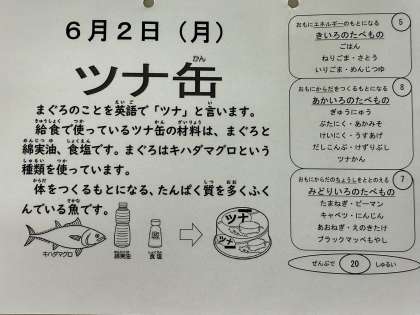 6月2日（月）
ツナ缶
かん
まぐろのことを英語で「ツナ」と言います。
給食で使っているツナ缶の材料は、まぐろと
綿実油、食塩です。まぐろはキハダマグロという
種類を使っています。
体をつくるもとになる、たんぱく質を多くふく
んでいる魚です。
キハダマグロ
綿実油
食塩
ツナ
ツナ
5
おもにエネルギーのもとになる
きいろのたべもの
ごはん
ねりごま・さとう
いりごま・めんじつゆ
8
おもにからだをつくるもとになる
あかいろのたべもの
ぎゅうにゅう
ぶたにく・あかみそ
けいにく・うすあげ
だしこんぶ・けずりぶし
ツナかん
7
おもにからだのちょうしをととのえる
みどりいろのたべもの
たまねぎ・ピーマン
キャベツ・にんじん
あおねぎ・えのきたけ
ブラックマッペもやし
ぜんぶで 20 しゅるい